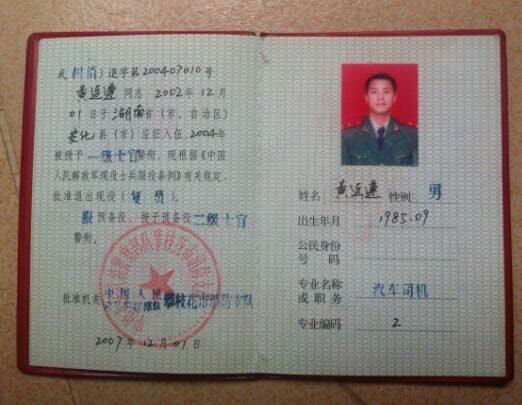 武(川消)退字第200407010号
黄运遵 同志 2002年12月
01日于湖南省(市、自治区)
安化县(市)应征入伍,2004年
被授予一级士官警衔,现根据《中国
人民解放军现役士兵服役条例》有关规定,
批准退出现役(复员)
服预备役,授予预备役二级士官
警衔。
批准机关
中国人民
攀枝花市消防支队
2007年12月01日
姓名 黄运遵 性别 男
出生年月 1985.09
公民身份
号码
专业名称
或职务 汽车司机
专业编码 2